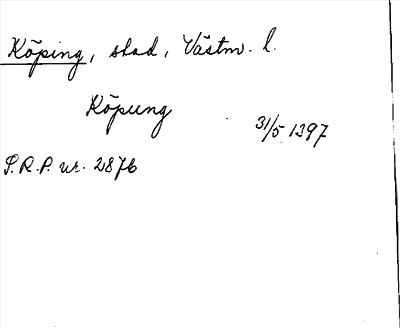 Köping, stad, Västm. l.
Köpung 31/5 1397
S.R.P. nr. 2876